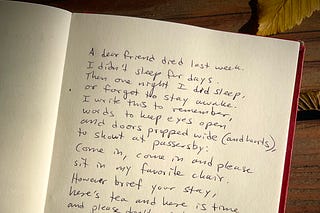 A dear friend died last week.
I didn't sleep for days.
Then one night I did sleep,
or forgot to stay awake.
I write this to remember,
words to keep eyes open
and doors propped wide (and hearts),
to shout at passersby:
Come in, come in and please
sit in my favorite chair.
However brief your stay,
here's tea and here is time
and please don't